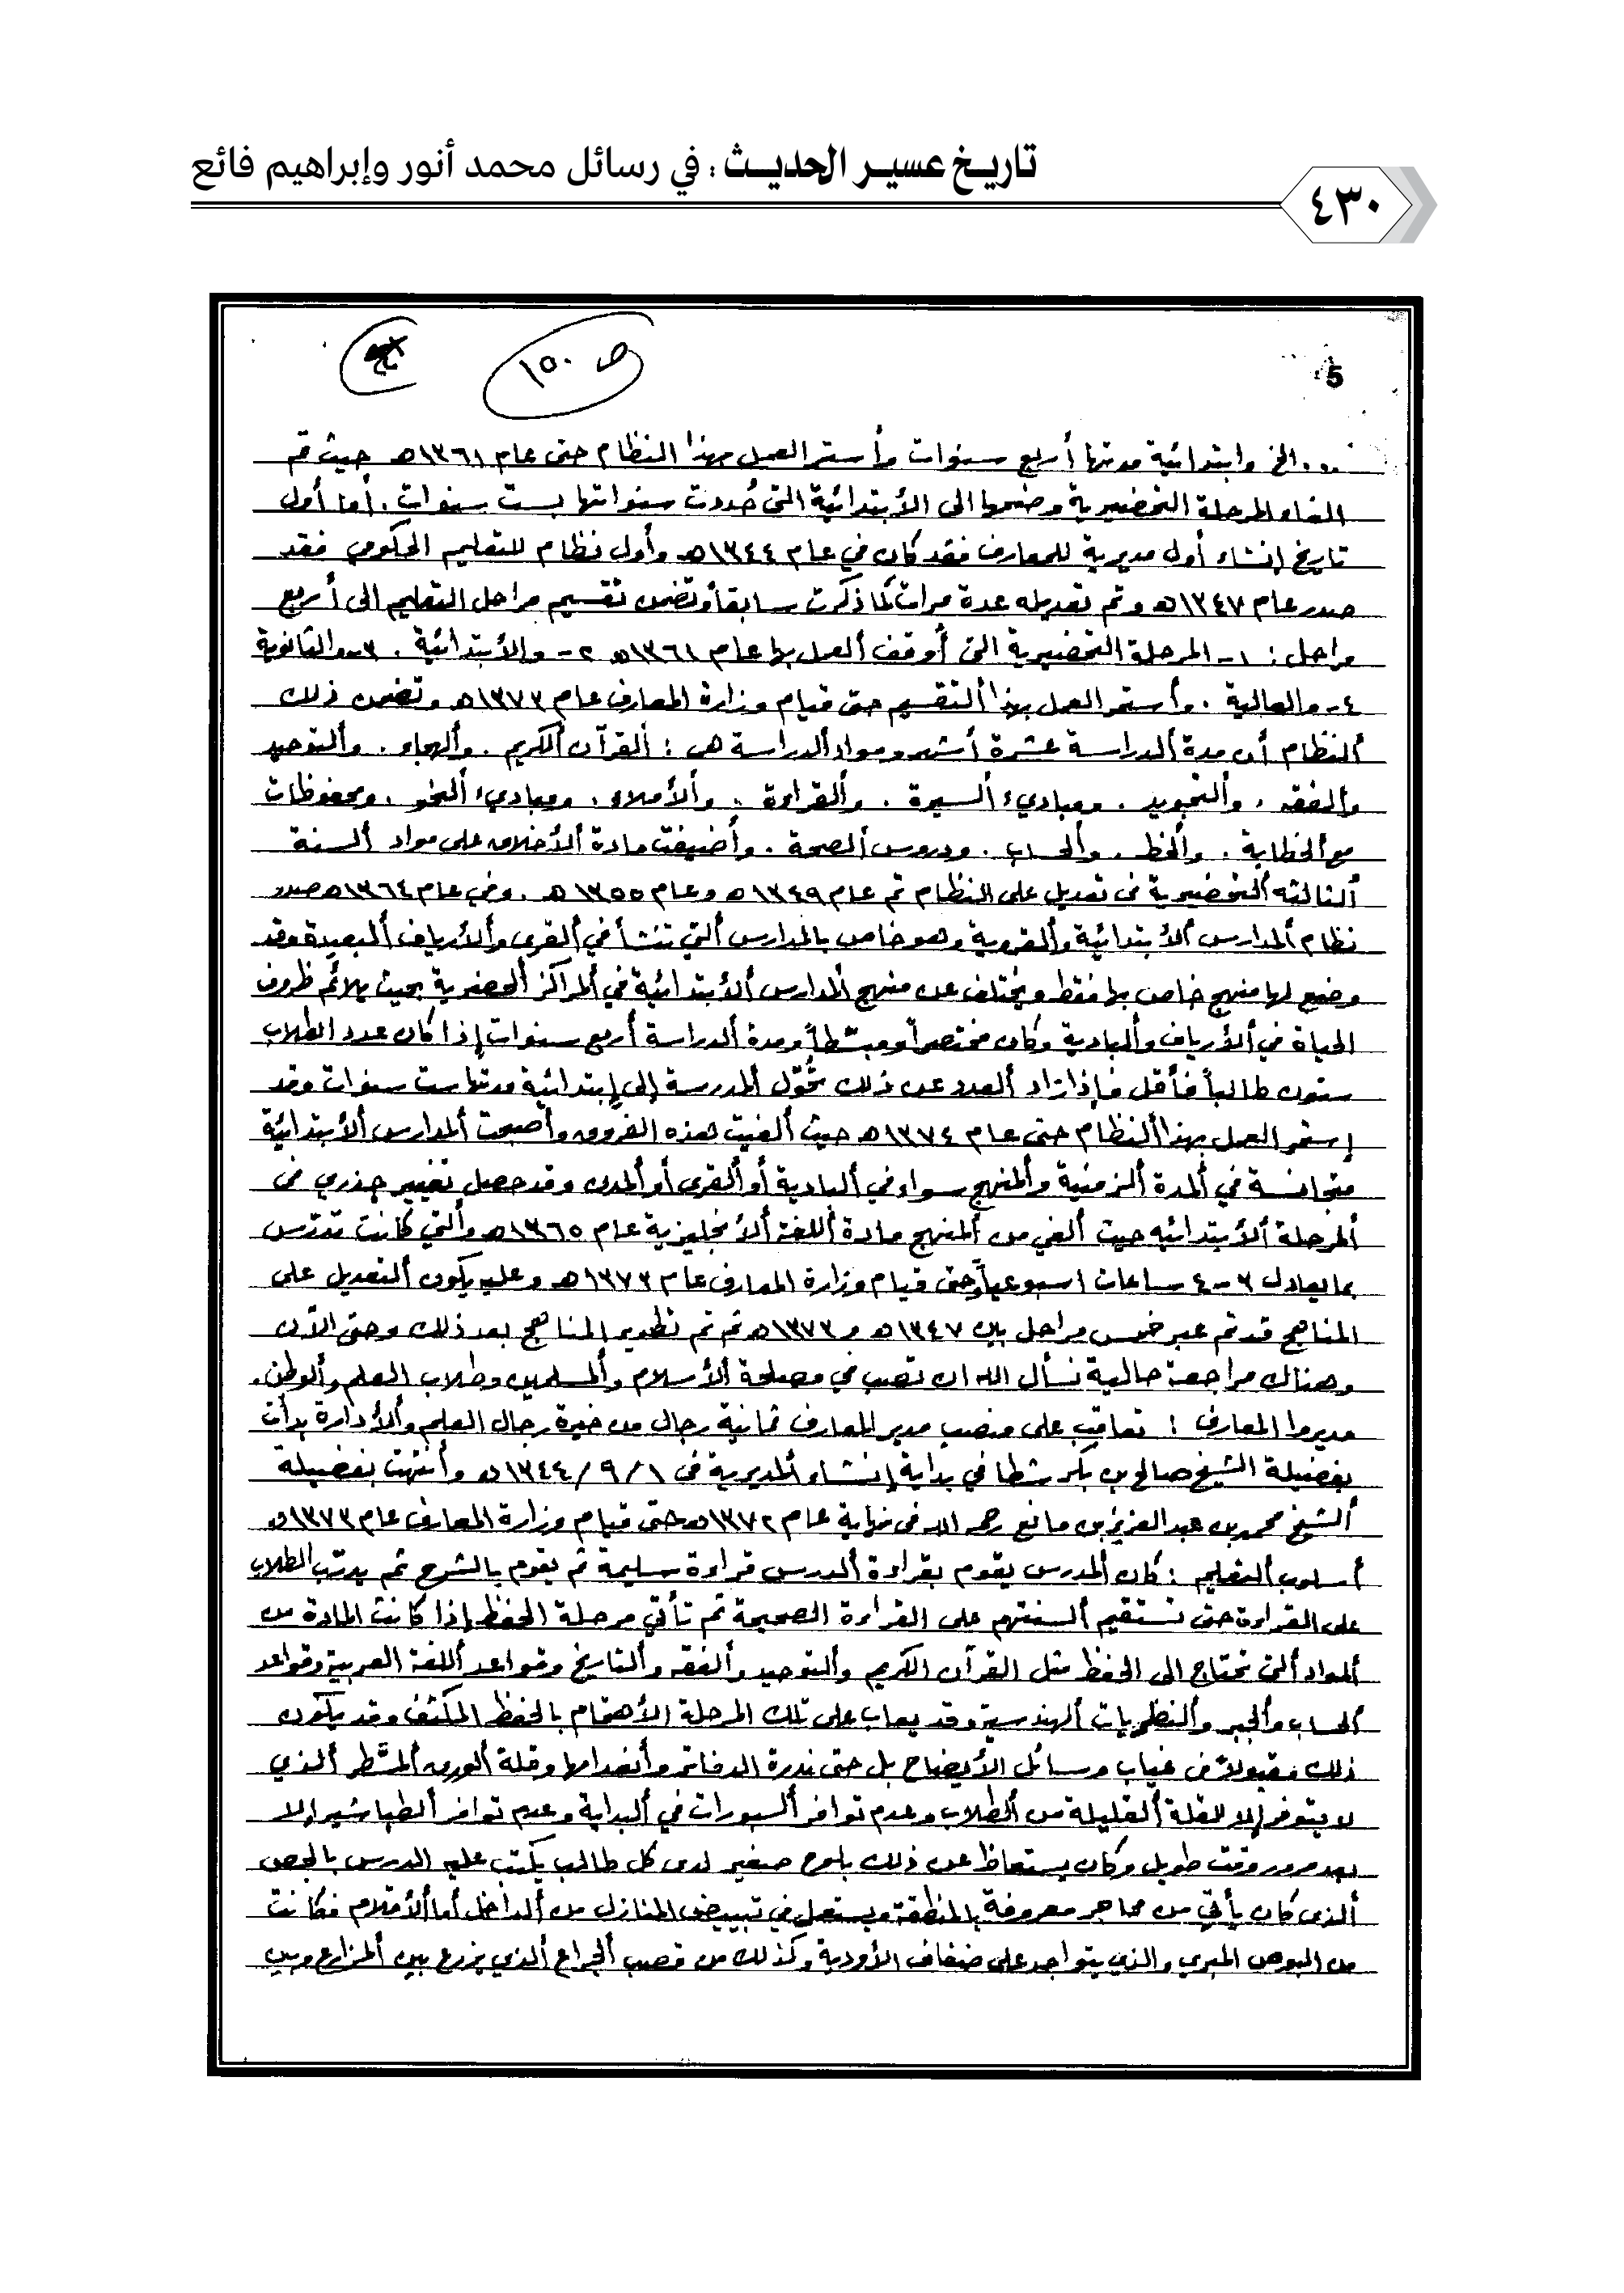 تاريخ عسير الحديث : في رسائل محمد أنور وإبراهيم فائع
٤٣٠
ص ١٥٠
5
... الخ وابتدائية مدتها أربع سنوات وأستمر العمل بهذا النظام حتى عام ١٣٦١هـ حيث تم
الغاء المرحلة التحضيرية وضمها الى الأبتدائية التى حُددت سنواتها بست سنوات . أما أول
تاريخ إنشاء أول مديرية للمعارف فقد كان في عام ١٣٤٤هـ وأول نظام للتعليم الحكومي فقد
صدر عام ١٣٤٧هـ وتم تعديله عدة مرات كما ذكرت سابقاً وتضمن تقسيم مراحل التعليم الى أربع
مراحل : ١- المرحلة التحضيرية التى أوقف العمل بها عام ١٣٦١هـ ٢- والأبتدائية . ٣- والثانوية
٤- والعالية . وأستمر العمل بهذا ألتقسيم حتى قيام وزارة المعارف عام ١٣٧٣هـ وتضمن ذلك
ألنظام أن مدة ألدراسة عشرة أشهر ومواد ألدراسة هى : ألقرآن ألكريم . وألهجاء . وألتوحيد
وألفقه . وألتجويد . ومباديء ألسيرة . وألقراءة . وألأملاء . ومباديء ألنحو . ومحفوظات
مع ألخطابة . وألخط . وألحساب . ودروس ألصحة . وأضيفت مادة ألأخلاق على مواد ألسنة
ألثالثه ألتحضيرية فى تعديل على النظام تم عام ١٣٤٩هـ وعام ١٣٥٥هـ . وفي عام ١٣٦٤هـ صدر
نظام ألمدارس ألأبتدائية وألقروية وهو خاص بالمدارس ألتي تنشأ في ألقرى وألأرياف ألبعيدة وقد
وضع لها منهج خاص بها فقط ويختلف عن منهج ألمدارس ألأبتدائية في ألمراكز ألحضرية بحيث يلائم ظروف
الحياة في ألأرياف وألبادية وكان مختصراً ومبسّطاً ومدة ألدراسة أربع سنوات إذا كان عدد الطلاب
ستون طالباً فأقل فإذا زاد ألعدد عن ذلك تحُوّل ألمدرسة إلى إبتدائية مدتها ست سنوات وقد
إستمر العمل بهذا ألنظام حتى عام ١٣٧٤هـ حيث ألغيت هذه الفروق وأصبحت ألمدارس ألأبتدائية
متجانسة في ألمدة ألزمنية وألمنهج سواء في ألبادية أو ألقرى أو ألمدن وقد حصل تغيير جذري فى
ألمرحلة ألأبتدائيه حيث ألغي من ألمنهج مادة أللغة ألأنجليزية عام ١٣٦٥هـ وألتي كانت تدرّس
بما يعادل ٣-٤ ساعات اسبوعياً وحتى قيام وزارة المعارف عام ١٣٧٣هـ وعليه يكون ألتعديل على
المناهج قد تم عبر خمس مراحل بين ١٣٤٧هـ و ١٣٧٣هـ ثم تم تطوير المناهج بعد ذلك وحتى الآن
وهناك مراجعة حالية نسأل الله ان تصب في مصلحة ألأسلام وألمسلمين وطلاب العلم وألوطن.
مديروا المعارف : تعاقب على منصب مدير المعارف ثمانية رجال من خيرة رجال العلم وألأدارة بدأت
بفضيلة الشيخ صالح بن بكر شطا في بداية إنشاء ألمديرية فى ١/٩/١٣٤٤هـ وأنتهت بفضيلة
ألشيخ محمد بن عبد العزيز بن مانع رحمه الله فى نهاية عام ١٣٧٢هـ حتى قيام وزارة المعارف عام ١٣٧٣هـ
أسلوب ألتعليم : كان ألمدرس يقوم بقراءة ألدرس قراءة سليمة ثم يقوم بالشرح ثم يدرّب الطلاب
على القراءة حتى تستقيم ألسنتهم على القراءة الصحيحة ثم تأتي مرحلة الحفظ إذا كانت المادة من
ألمواد ألتى تحتاج الى الحفظ مثل القرآن الكريم وألتوحيد وألفقه وألتاريخ وقواعد أللغة العربية وقواعد
ألحساب وألجبر وألنظريات ألهندسية وقد يعاب على تلك المرحلة الأهتمام بالحفظ المكثف وقد يكون
ذلك مقبولاً فى غياب وسائل الأيضاح بل حتى ندرة الدفاتر وأنعدامها وقلة ألورق ألمسّطر ألذي
لا يتوفر إلا للقلة ألقليلة من ألطلاب وعدم توافر ألسبورات في ألبداية وعدم توافر ألطباشير إلا
بعد مرور وقت طويل وكان يستعاظ عن ذلك بلوح صغير لدى كل طالب يكتب عليه الدرس بالجص
ألذى كان يأتي من محاجر معروفة بالمنطقة ويستعمل في تبييض المنازل من ألداخل أما ألأقلام فكانت
من البوص المبري والذي يتواجد على ضفاف الأودية وكذلك من قصب ألجراع ألذي يزرع بين ألمزارع وبين